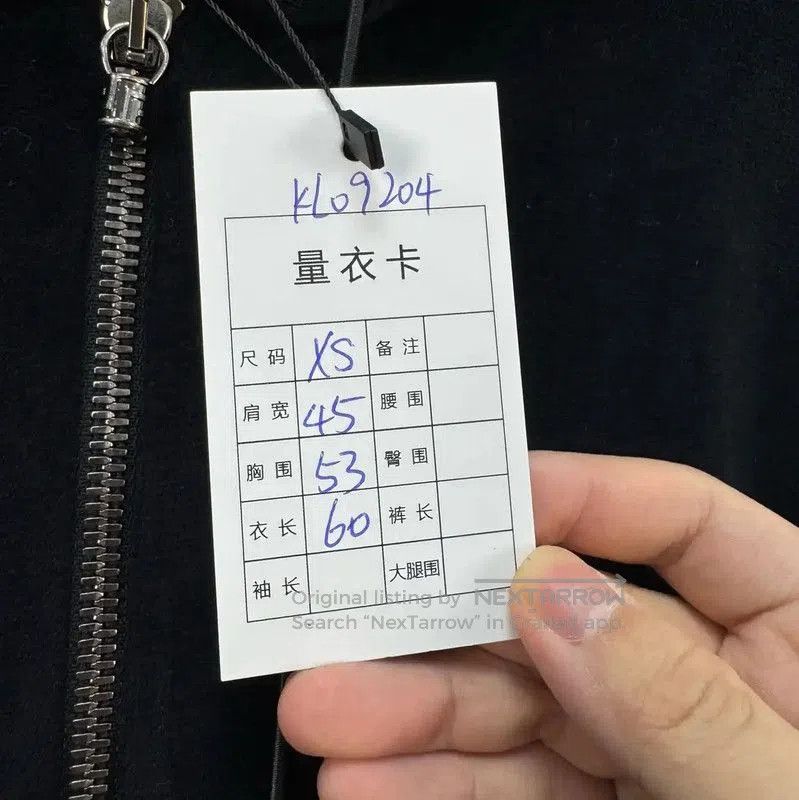 KL09204
量衣卡
尺码 XS 备注
肩宽 45 腰围
胸围 53 臀围
衣长 60 裤长
袖长 大腿围
Original listing by NEXTARROW
Search “NexTarrow” in Grailed app